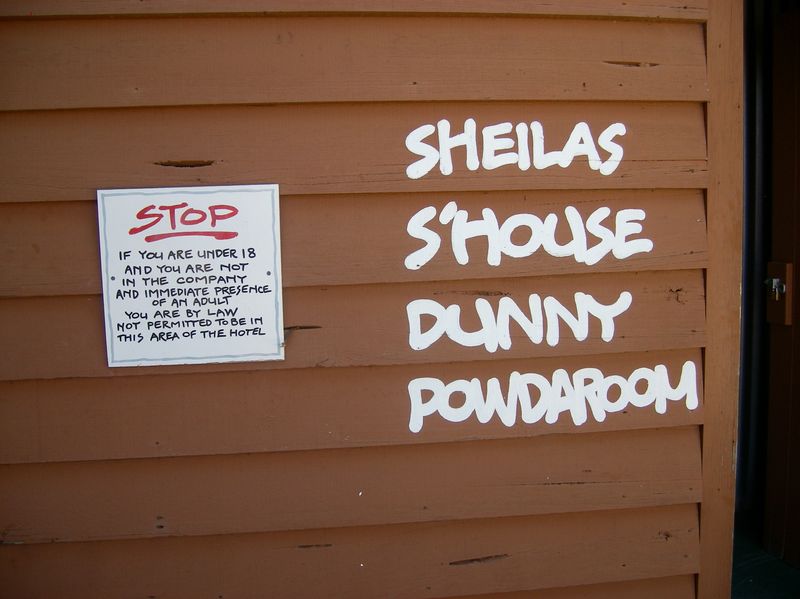 STOP
IF YOU ARE UNDER 18
AND YOU ARE NOT
IN THE COMPANY
AND IMMEDIATE PRESENCE
OF AN ADULT
YOU ARE BY LAW
NOT PERMITTED TO BE IN
THIS AREA OF THE HOTEL
SHEILAS
S'HOUSE
DUNNY
POWDAROOM